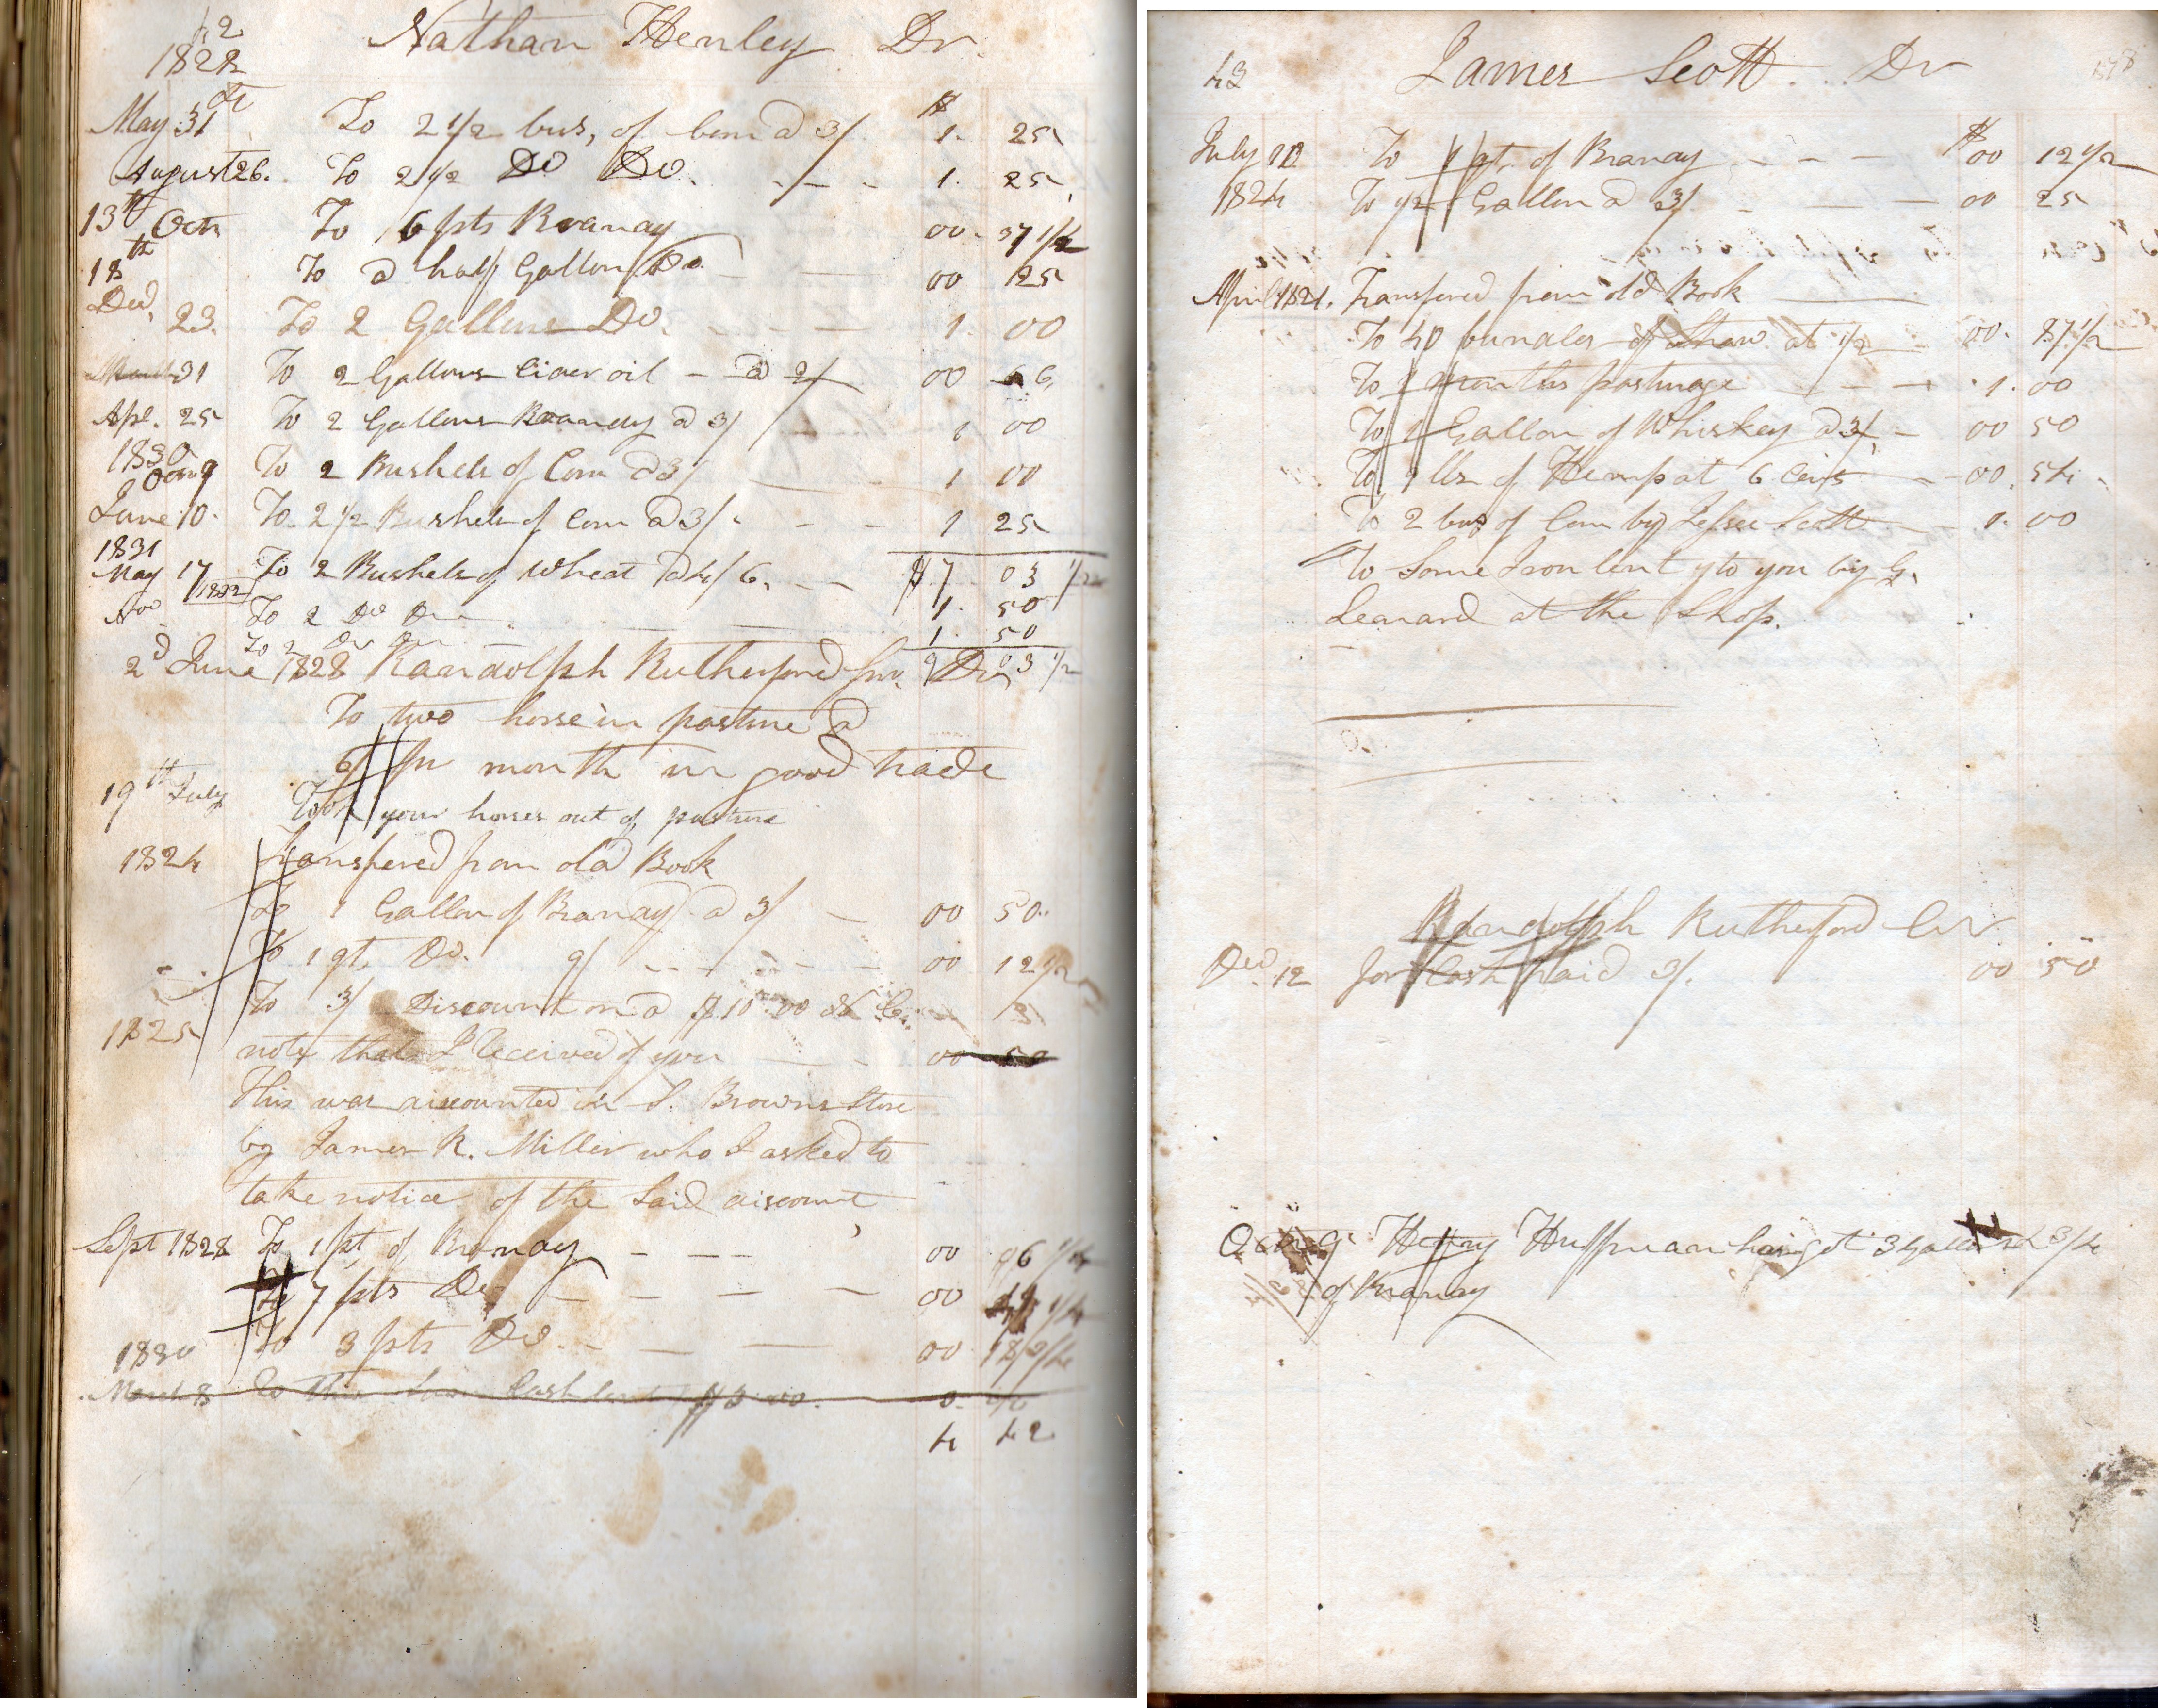 42
1828
Nathan Henley Dr.
$
May 31st To 2 1/2 bus, of corn a 3/ 1. 25
August 26. To 2 1/2 Do Do. 1. 25
13th Octr To 6 pts Brandy 00. 37 1/2
18th To a half Gallon Do. 00 25
Decr. 23. To 2 Gallons Do. 1. 00
31 To 2 Gallons oil a 2/ 00 66
Apl. 25 To 2 Gallons Brandy a 3/ 1 00
1830
9 To 2 Bushels of Corn a 3/ 1 00
June 10. To 2 1/2 Bushels of Corn a 3/. 1 25
1831
$7 03 1/2
May 17 To 2 Bushels of Wheat a 4/6. 1. 50
Nov 1832 To 2 Do Do 1. 50
To 2 Do Do
2d June 1828 Randolph Rutherford Dr 9 03 1/2
To two horse in pasture a
6/ pr month in good trade
19th July Took your horses out of pasture
1824 Transfered from old Book
To 1 Gallon of Brandy a 3/ 00 50
To 1 qt. Do. 9/ 00 12 1/2
1825 To 3/ Discount on a $10.00 N C.
note that I Received of you 00 50
This was discounted in S. Browns Store
by James R. Miller who I asked to
take notice of the Said discount
Sept 1828 To 1 pt of Brandy 00 06 1/4
To 7 pts Do 00
To 3 pts Do. 00 18 3/4
1830
March 8 To this Sum Cash lent $3.00. 0.
4 42
43
James Scott Dr
July 10 To 1 qt. of Brandy $00 12 1/2
1824 To 1/2 Gallon a 3/ 00 25
April 1821. Transfered from old Book
To 40 bundles of Straw at 1/2 00. 87 1/2
To months pasturage 1. 00
To 1 Gallon of Whiskey a 3/ 00 50
To 9 lbs of Hemp at 6 Cents 00. 54
To 2 bus of Corn by Jesse Scott 1. 00
To Some Iron lent to you by G.
Leonard at the Shop.
Randolph Rutherford Cr
Decr. 12 for Cash paid 3/. 00 50
9 Henry Huffman has got 3 Gallons 3/4
of Brandy